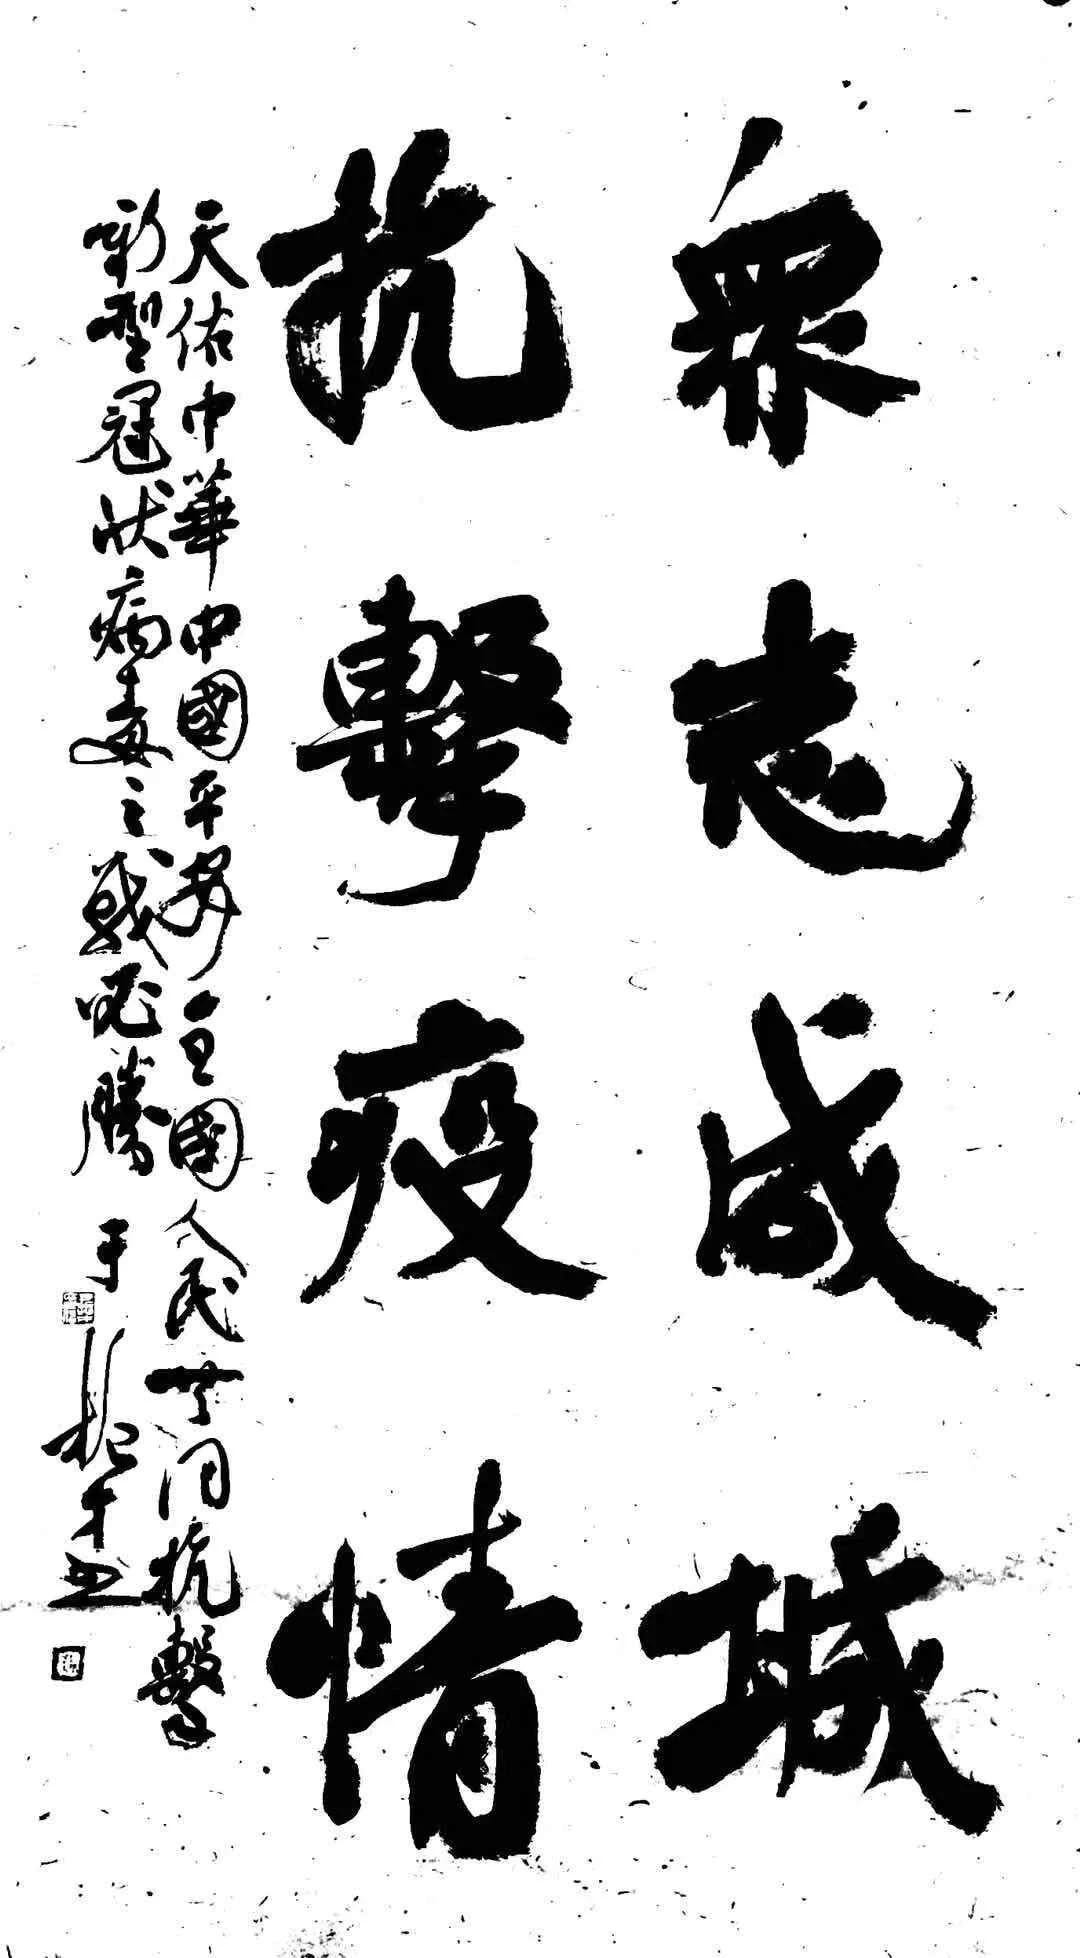 眾志成城
抗擊疫情
天佑中華中國平安全國人民共同抗擊
新型冠狀病毒之戰必勝 于振平